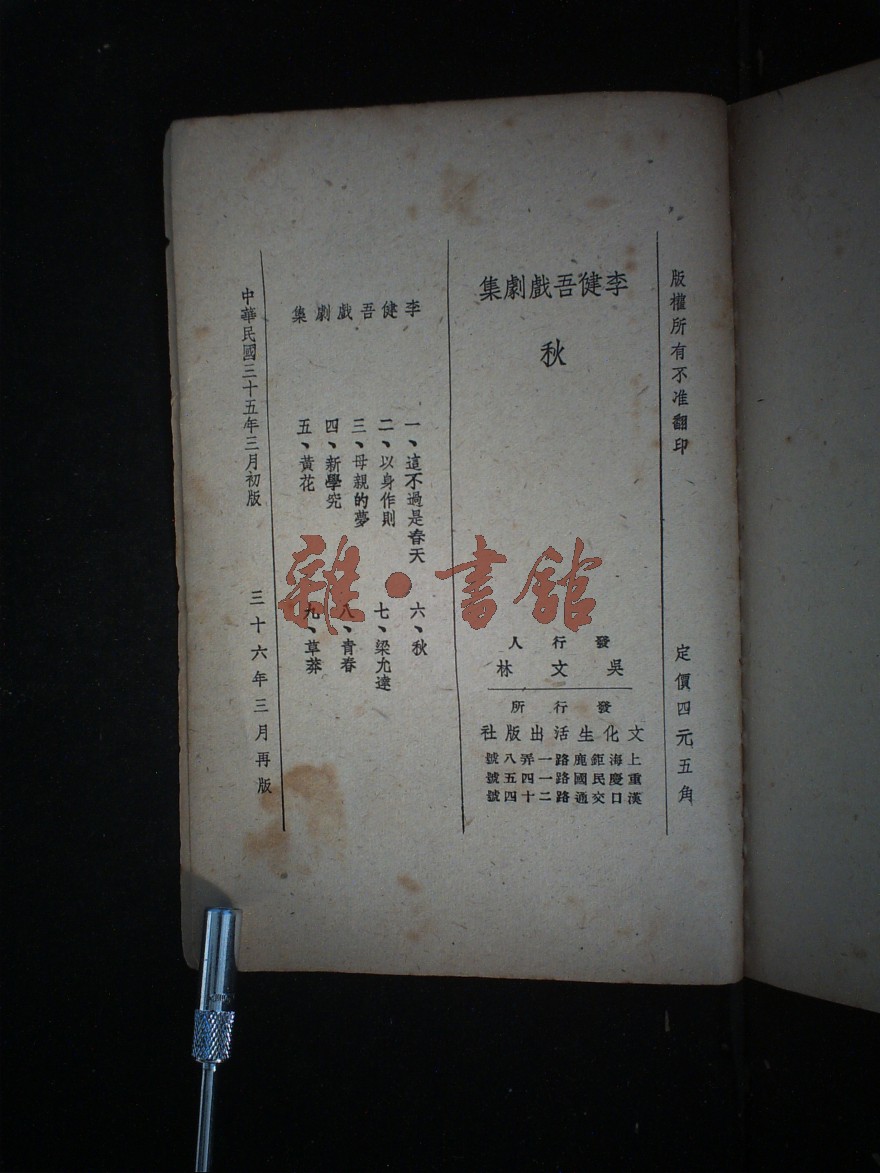 版權所有不准翻印
定價四元五角
李健吾戲劇集
秋
發行人
吳文林
發行所
文化生活出版社
上海鉅鹿路一弄八號
重慶民國路一四五號
漢口交通路二十四號
李健吾戲劇集
一、這不過是春天
二、以身作則
三、母親的夢
四、新學究
五、黃花
六、秋
七、梁允達
八、青春
九、草莽
中華民國三十五年三月初版
三十六年三月再版
雜·書館